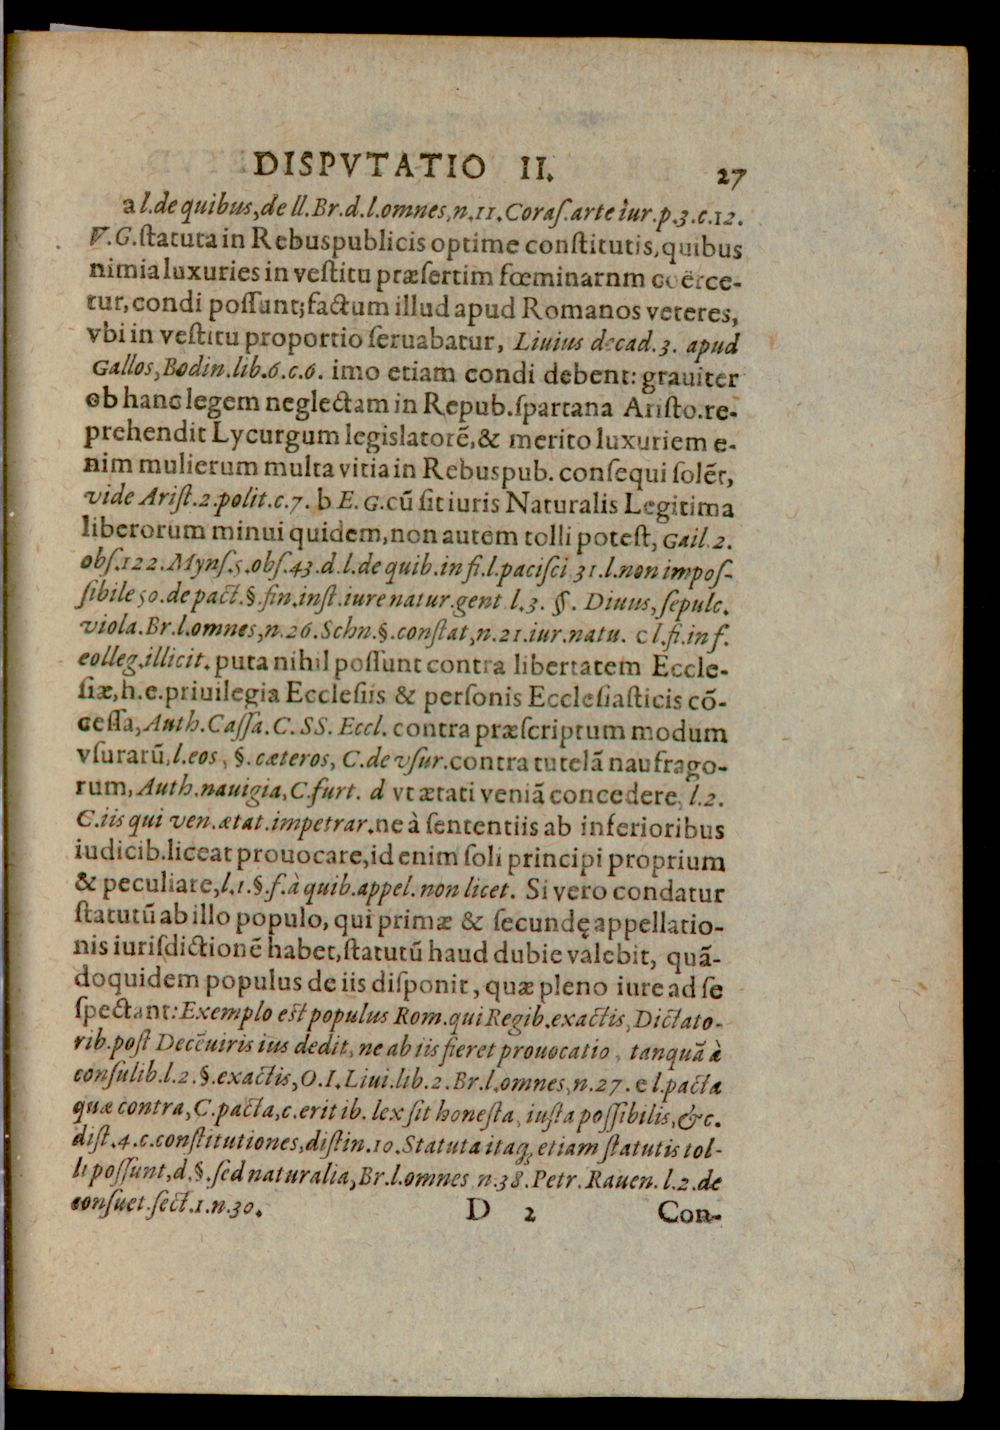 DISPVTATIO II. 27
a l.de quibus, de ll. Br.d.l.omnes, n.11. Coraſ.arte iur.p.3.c.12.
V.G.ſtatuta in Rebuspublicis optime conſtitutis, quibus
nimia luxuries in veſtitu præſertim fœminarnm coërce-
tur, condi poſſunt; factum illud apud Romanos veteres,
vbi in veſtitu proportio ſeruabatur, Liuius decad.3. apud
Gallos, Bodin.lib.6.c.6. imo etiam condi debent: grauiter
ob hanc legem neglectam in Repub.ſpartana Ariſto.re-
prehendit Lycurgum legislatorẽ, & merito luxuriem e-
nim mulierum multa vitia in Rebuspub. conſequi ſolẽt,
vide Ariſt.2.polit.c.7. b E.G.cũ ſit iuris Naturalis Legitima
liberorum minui quidem, non autem tolli poteſt, Gail.2.
obſ.122.Mynſ.5.obſ.43.d.l.de quib.in fi.l.paciſci 31.l.non impoſ-
ſibile 50.de pact.§.fin.inſt.iure natur.gent l.3. §. Diuus, ſepulc.
viola.Br.l.omnes, n.26.Schn.§.conſtat, n.21.iur.natu. c l.fi.in f.
eolleg.illicit. puta nihil poſſunt contra libertatem Eccle-
ſiæ, h.e.priuilegia Eccleſiis & perſonis Eccleſiaſticis cõ-
ceſſa, Auth.Caſſa.C.SS.Eccl. contra præſcriptum modum
vſurarũ, l.eos, §.cæteros, C.de vſur.contra tutelã naufrago-
rum, Auth.nauigia, C.furt. d vt ætati veniã concedere, l.2.
C.iis qui ven.ætat.impetrar.ne à ſententiis ab inferioribus
iudicib.liceat prouocare, id enim ſoli principi proprium
& peculiare, l.1.§.f.à quib.appel.non licet. Si vero condatur
ſtatutũ ab illo populo, qui primæ & ſecundę appellatio-
nis iuriſdictionẽ habet, ſtatutũ haud dubie valebit, quã-
doquidem populus de iis diſponit, quæ pleno iure ad ſe
ſpectant: Exemplo eſt populus Rom.qui Regib.exactis, Dictato-
rib.poſt Decẽuiris ius dedit, ne ab iis fieret prouocatio, tanquã à
conſulib.l.2.§.exactis, O.I.Liui.lib.2.Br.l.omnes, n.27. e l.pacta
quæ contra, C.pacta, c.erit ib. lex ſit honeſta, iuſta poſſibilis, &c.
diſt.4.c.conſtitutiones, diſtin.10.Statuta itaq; etiam ſtatutis tol-
li poſſunt, d.§.ſed naturalia, Br.l.omnes n.38.Petr.Rauen.l.2.de
conſuet.ſect.1.n.30.
D 2 Con-